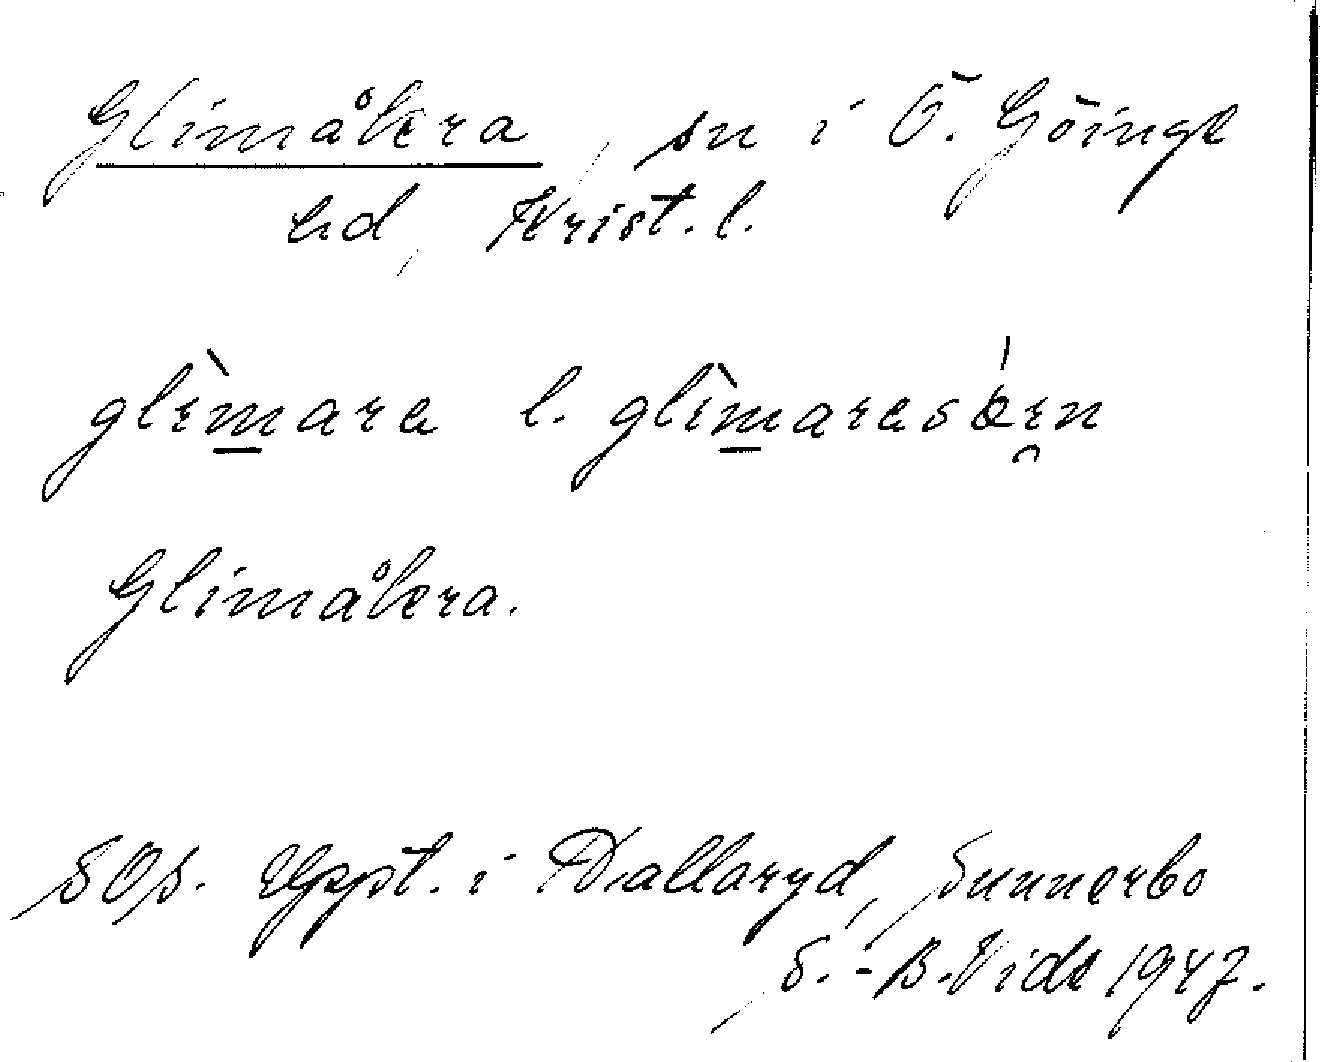 Glimåkra, sn i Ö. Göinge
hd, Krist. l.
glìmara l. glìmarasókn
Glimåkra.
SOs. Uppt. i Hallaryd, Sunnerbo
S.-B. Vide 1947.